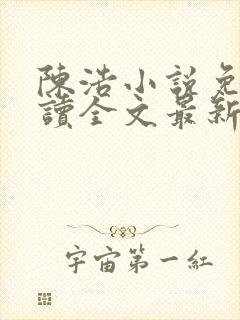 陳浩小說免
讀全文最新
宇宙第一紅